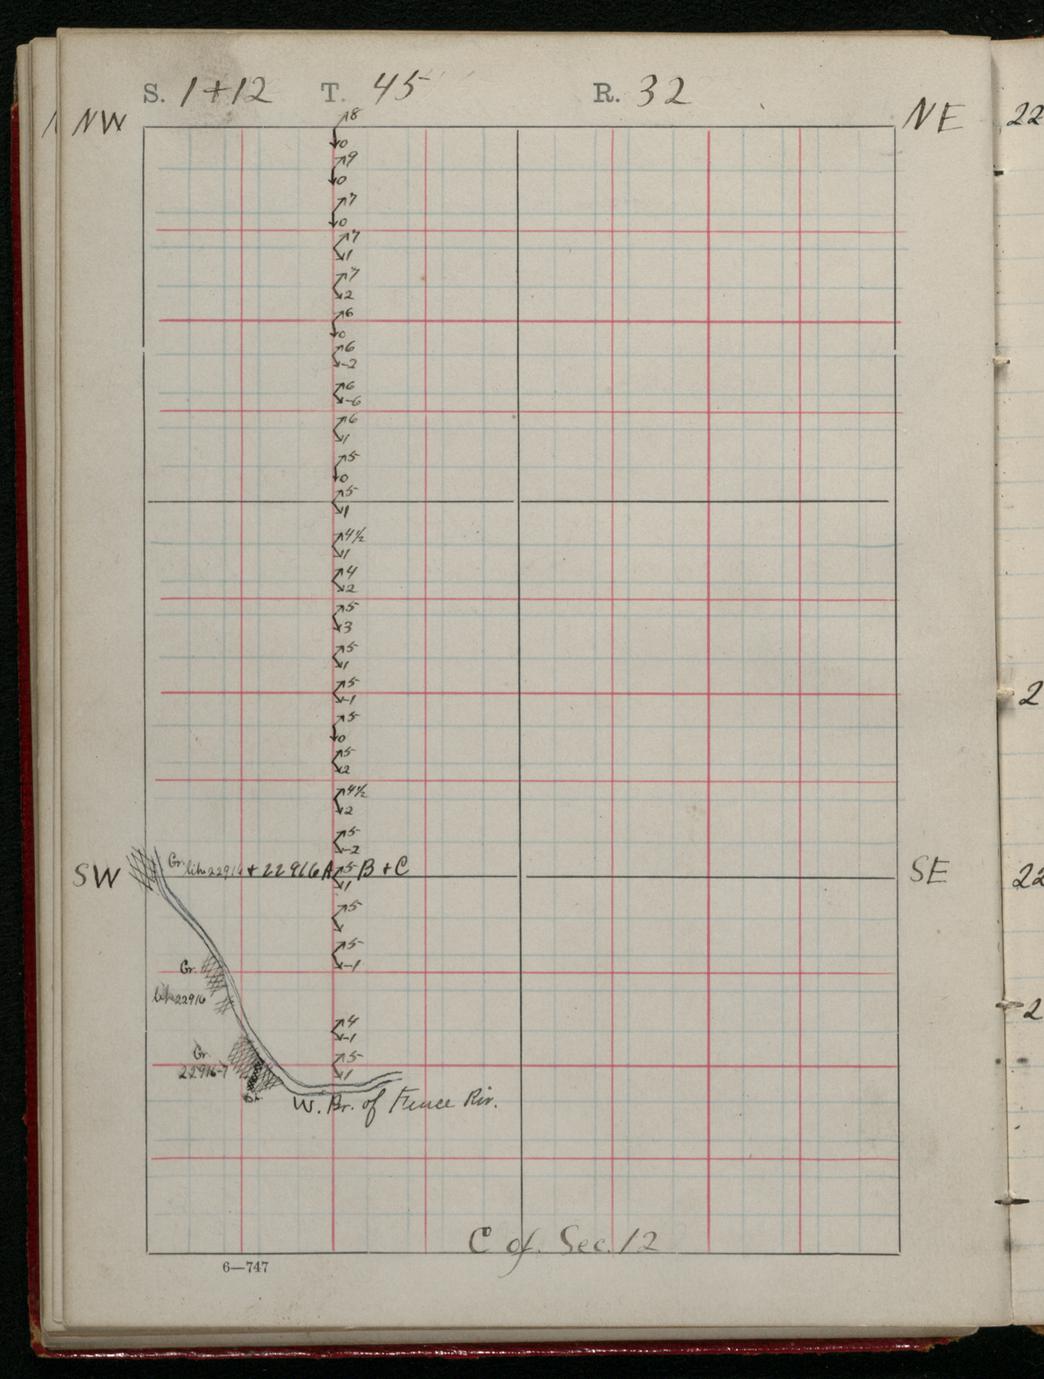 S. 1+12 T. 45 R. 32
NW NE 22
8
0
9
0
7
0
7
1
7
2
6
0
6
-2
6
-6
6
1
5
0
5
1
4½
1
4
2
5
3
5
1
5
-1
2
5
0
5
2
4½
2
5
-2
Gr. like 22916 + 22916A B + C
5
1
SW SE 22
5
5
-1
Gr.
like 22916
2
4
-1
Gr.
22916-7
5
1
W. Br. of Fence Riv.
C of. Sec. 12
6—747